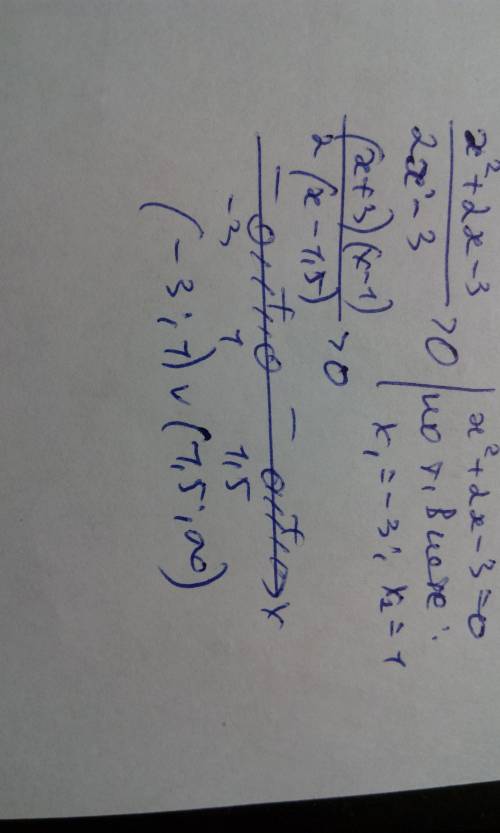 x²+2x-3 / 2x-3 >0 | x²+2x-3=0
по т. Виета:
x₁=-3; x₂=1
(x+3)(x-1) / 2(x-1,5) >0
- + - + x
-3 1 1,5
(-3; 1) ∪ (1,5; ∞)